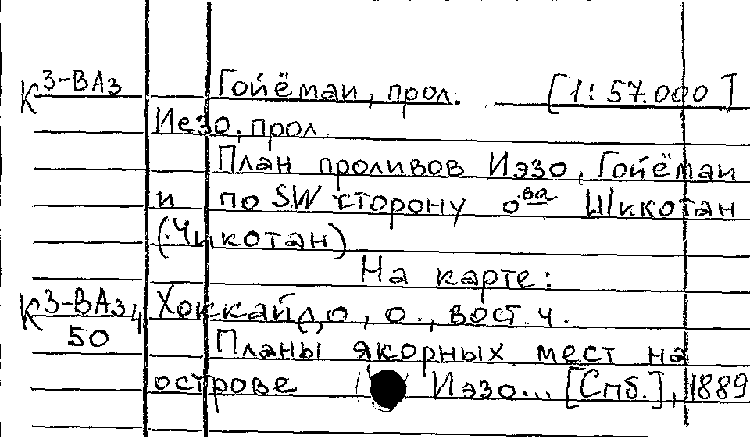 К 3-ВАз Гойёман, прол. [1:57.000]
Иезо, прол.
План проливов Иэзо, Гойёман
и по SW сторону о-ва Шикотан
(Чикотан)
На карте:
К 3-ВАз 4 Хоккайдо, о., вост. ч.
50 Планы якорных мест на
острове Иэзо... [Спб.], 1889